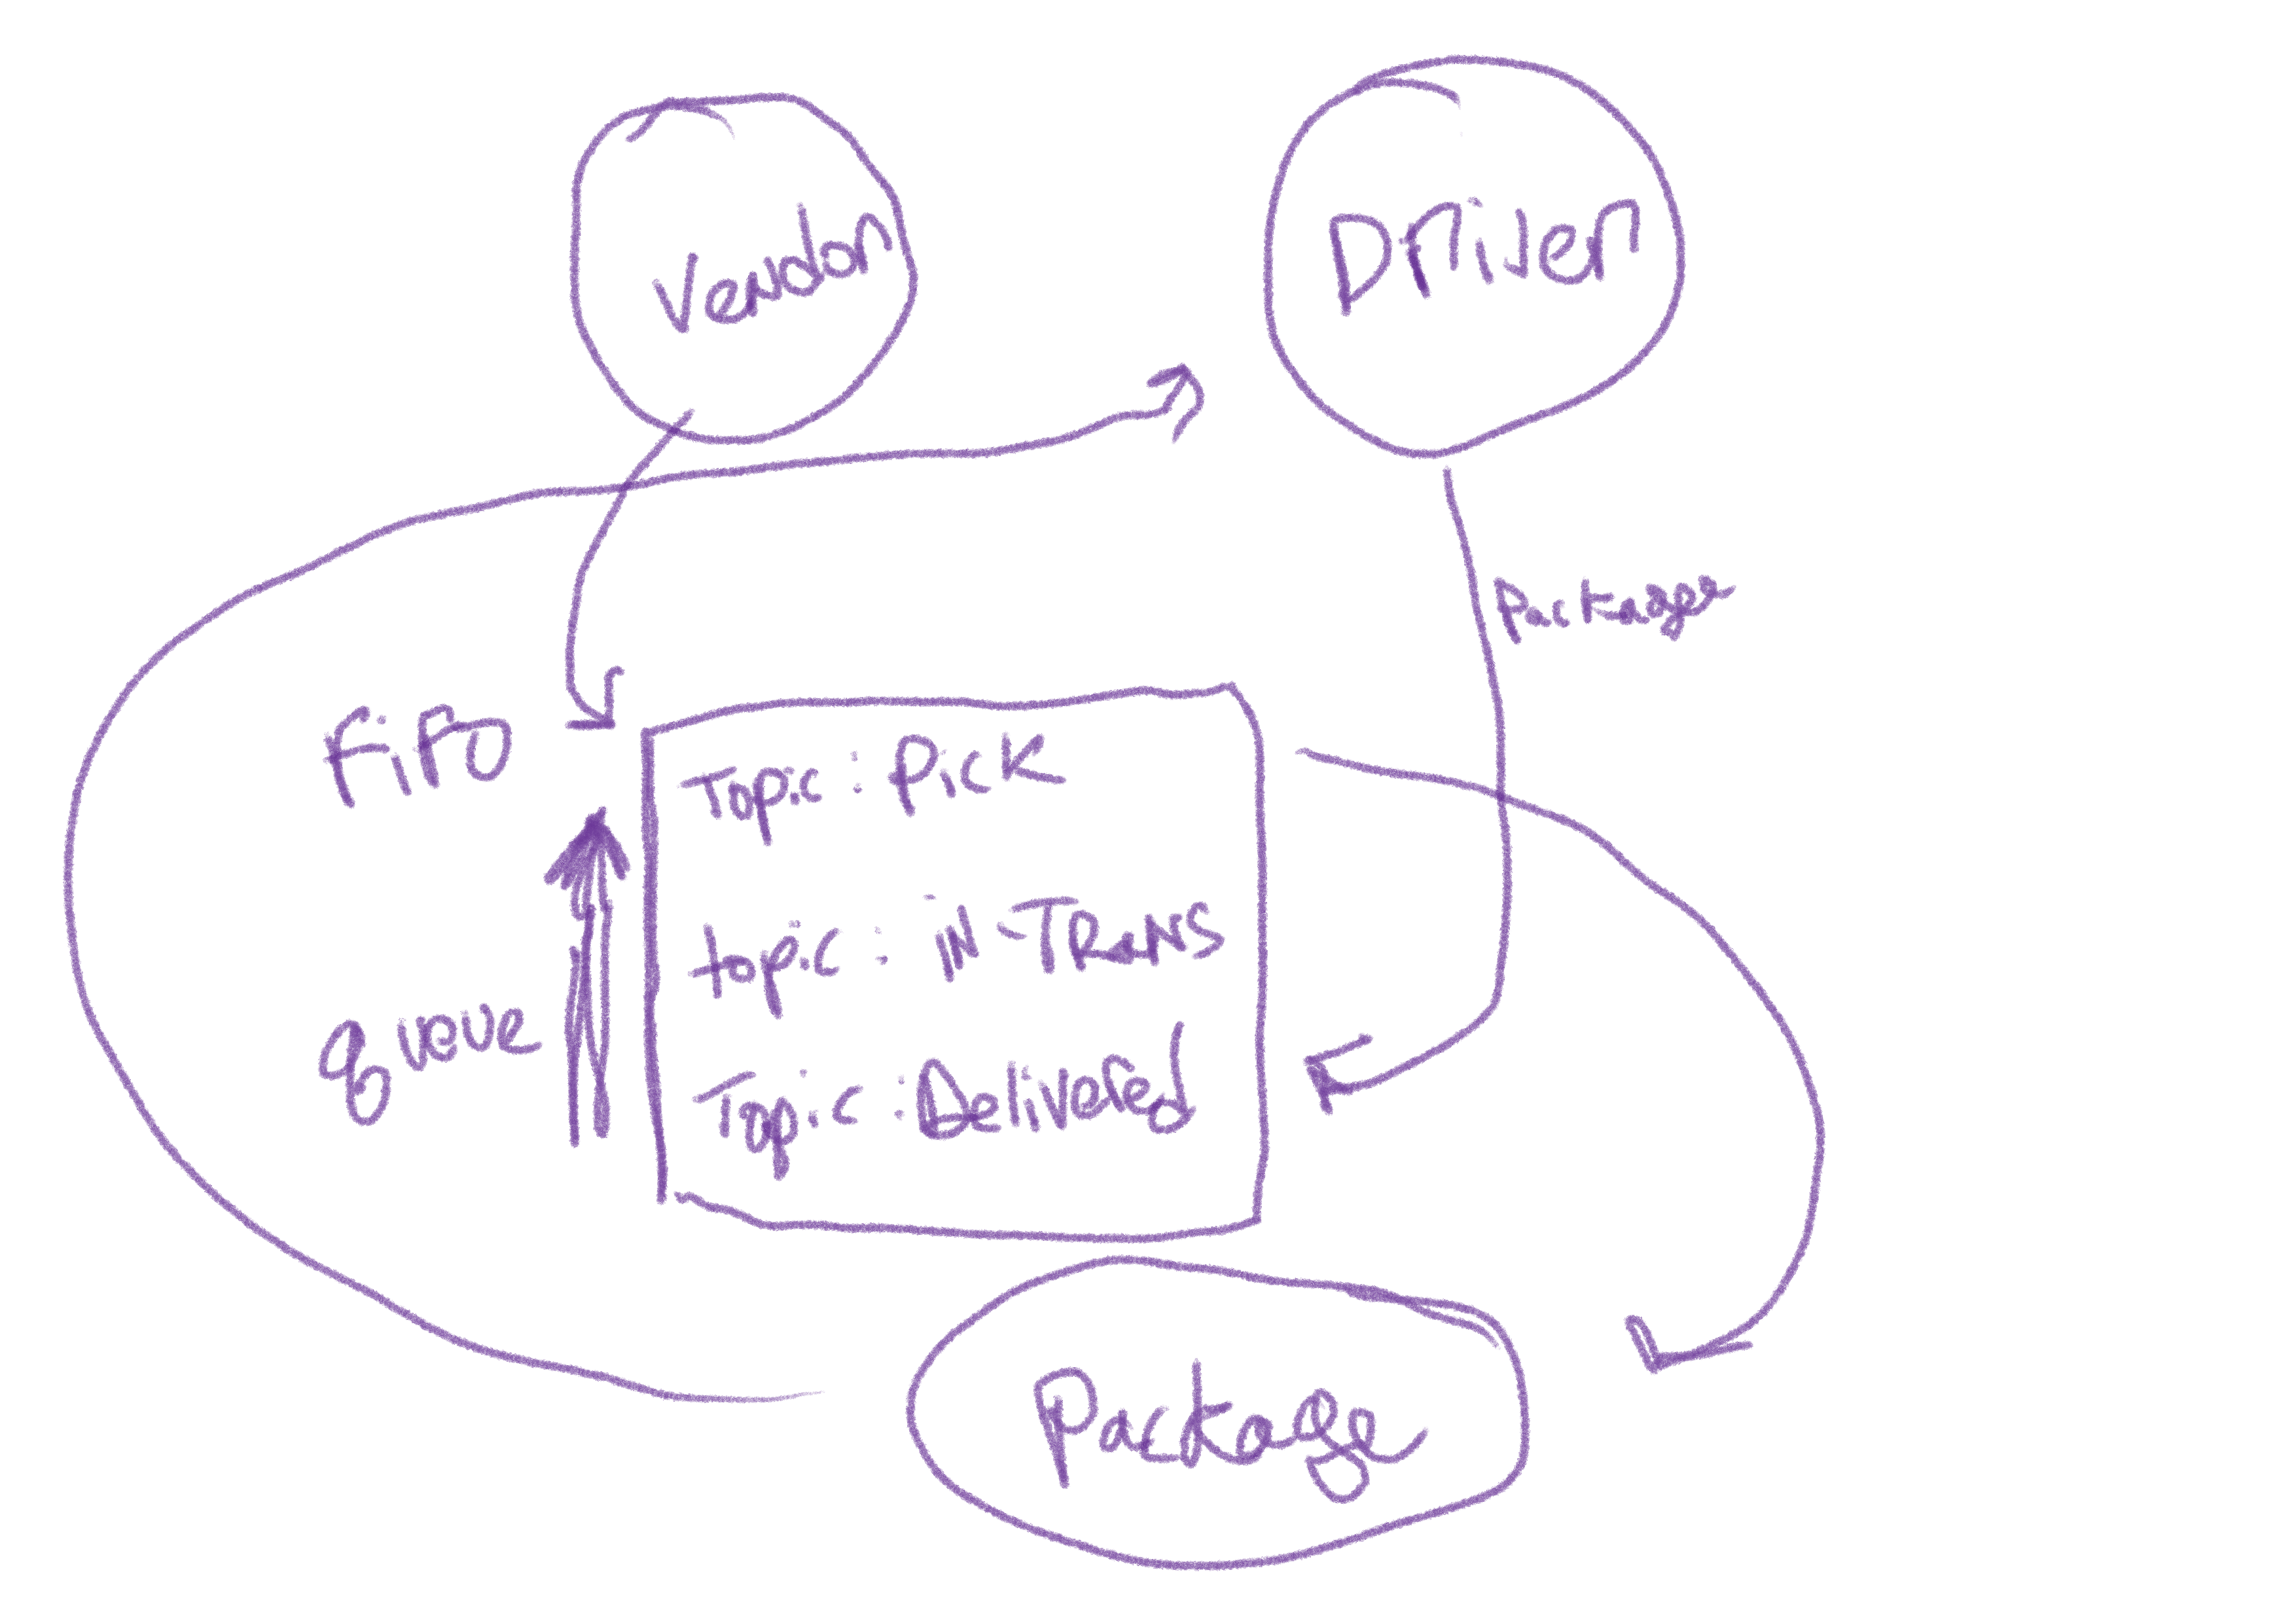 Vendor
Driver
Package
FiFO
Topic : Pick
topic : iN-TRANS
queue
Topic : Delivered
Package